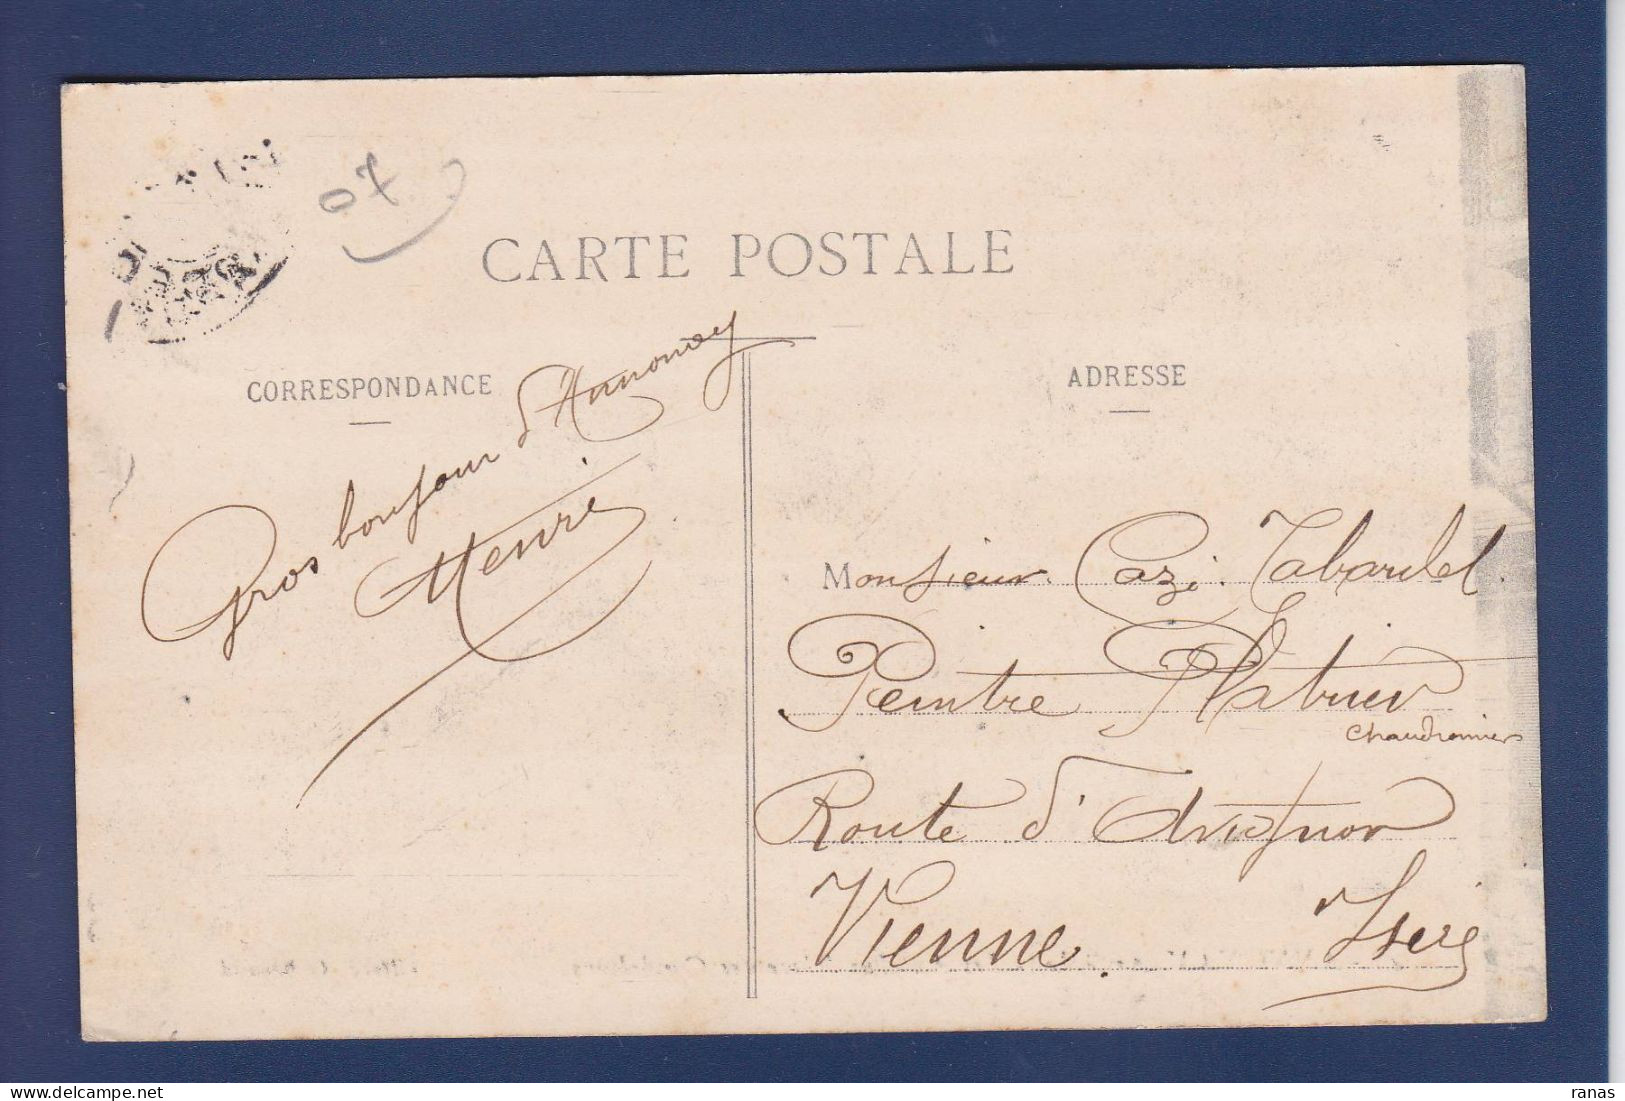 07
CARTE POSTALE
CORRESPONDANCE
ADRESSE
Gros bonjour d'Annonay
Henri
Monsieur Cazi. Tabardel
Peintre Platrier
Chaudronnier
Route d'Avignon
Vienne. Isere
ranas